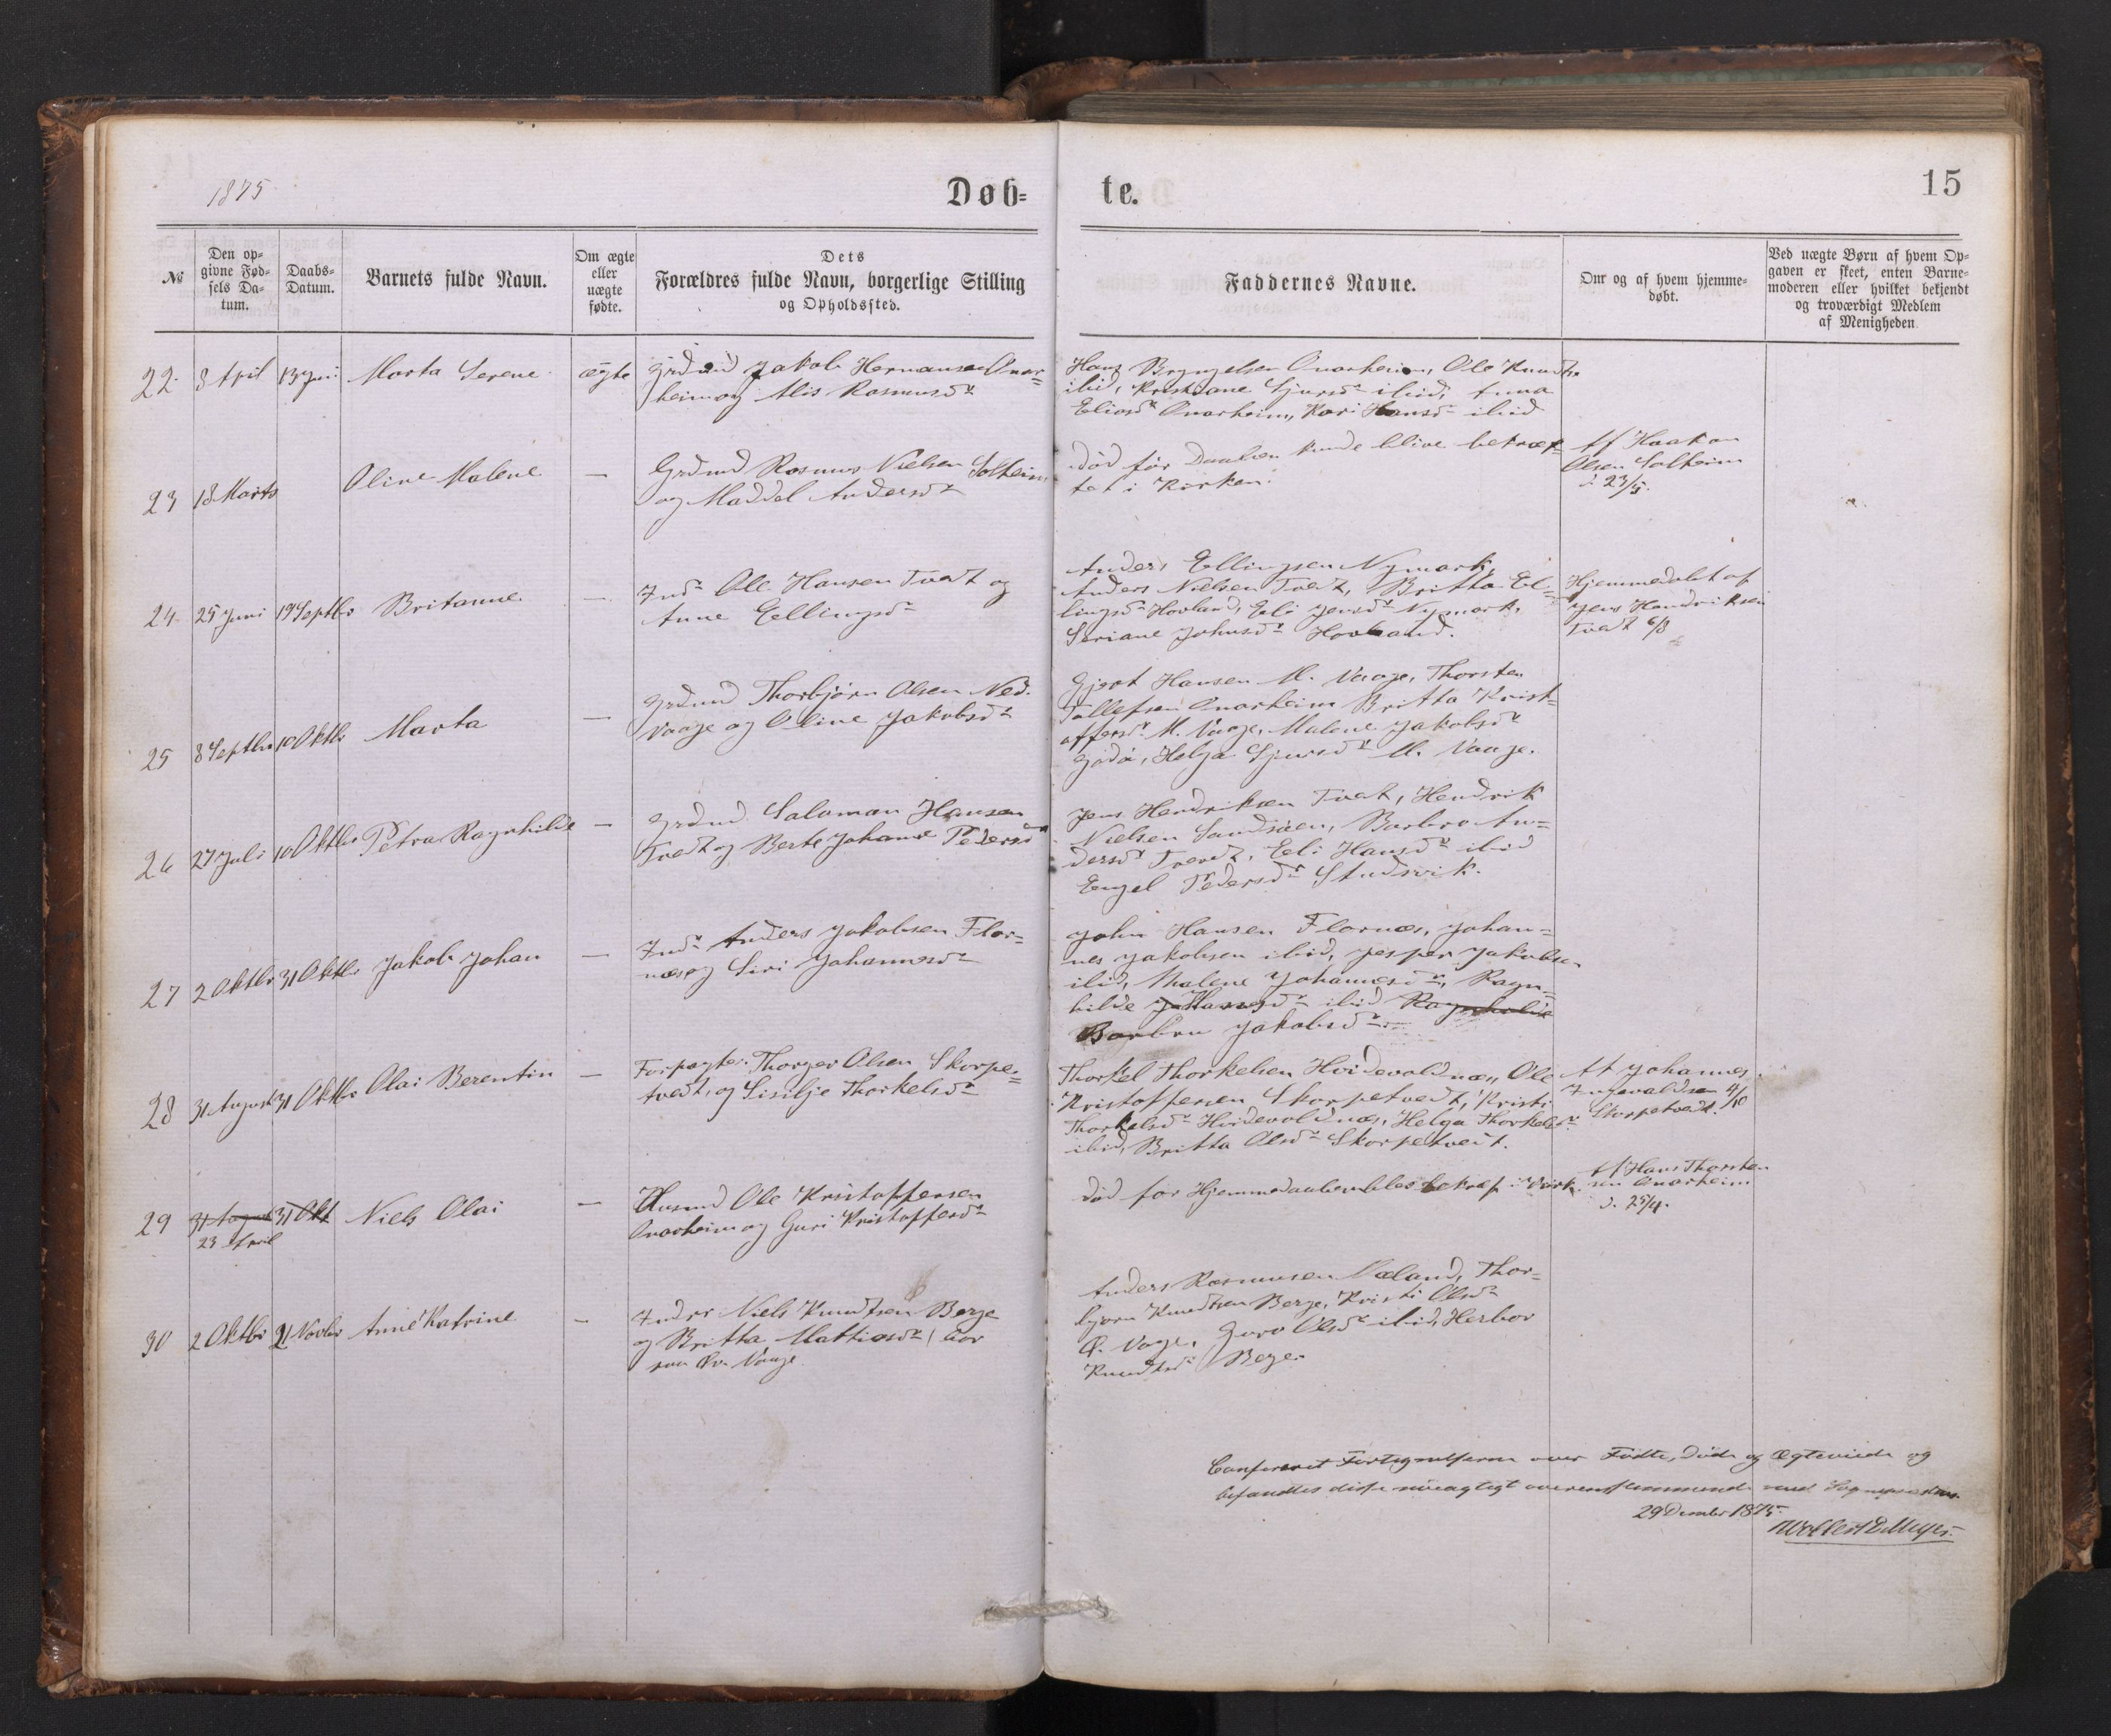 1875
Døb=
te.
15
№
Den op-
givne Fød-
sels Da-
tum.
Daabs-
Datum.
Barnets fulde Navn.
Om ægte
eller
uægte
fødte.
Dets
Forældres fulde Navn, borgerlige Stilling
og Opholdssted.
Faddernes Navne.
Om og af hvem hjemme-
døbt.
Ved uægte Børn af hvem Op-
gaven er skeet, enten Barne-
moderen eller hvilket bekjendt
og troværdigt Medlem
af Menigheden
22 8 April 13 Juni Marta Serene ægte Grdmd Jakob Hermansen Onar=
heim og Alis Rasmusdr
Hans Brynjelsen Onarheim, Ole Knudts.
ibid, Kristiane Sjursdr ibid, Anna
Eliasdr Onarheim, Kari Hansdr ibid
23 18 Marts Oline Malene — Grdmd Rasmus Nielsen Solheim
og Maddel Andersdr
død før Daaben kunde blive bekræf=
tet i Kirken.
Af Haakon
Olsen Solheim
d. 23/3.
24 25 Juni 19 Septbr Britanne — Indr Ole Hansen Tvedt og
Anne Ellingsdr
Anders Ellingsen Nymark,
Anders Nielsen Tvedt, Britta El=
lingsdr Hovland, Eli Jensdr Nymark,
Seriane Johnsdr Hovland.
Hjemmedøbt af
Jens Hendriksen
Tvedt 6/8
25 8 Septbr 10 Oktbr Marta — Grdmd Thorbjørn Olsen Ned.
Vaage og Oline Jakobsdr
Gjert Hansen M. Vaage, Thorsten
Tollefsen Onarheim Britta Krist=
offersdr M. Vaage, Malene Jakobsdr
Helga Sjursdr M. Vaage.
26 27 Juli 10 Oktbr Petra Ragnhilde — Grdmd Salomon Hansen
Tvedt og Berte Johanne Pedersdr
Jens Hendriksen Tvedt, Hendrik
Nielsen Barbro An=
dersdr Tvedt, Eli Hansdr ibid
Engel Pedersdr
27 2 Oktbr 31 Oktbr Jakob Johan — Indr Anders Jakobsen Flor=
næs og Siri Johannesdr
John Hansen Flornæs, Johan=
nes Jakobsen ibid, Jesper Jakobsen
ibid, Malene Johannesdr, Ragn=
hilde Hansdr ibid Ragnhilde
Barbru Jakobsdr
28 31 August 31 Oktbr Olai Berentin — Forpagter Thorger Olsen Skorpe=
tvedt, og Sisilje Thorkelsdr
Thorkel Thorkelsen Hvidevoldnæs, Ole
Kristoffersen Skorpetvedt, Kristi
Thorkelsdr Hvidevoldnæs, Helga Thorkelsdr
ibid, Britta Olsdr Skorpetvedt.
Af Johannes
Ingvaldsen 4/10
Skorpetvedt.
29 31 August 31 Okt Niels Olai — Husmd Ole Kristoffersen
23 April
Onarheim og Guri Kristoffersdr
død før Hjemmedaaben blev bekræf. i Kirk.
Af Hans Thorsten
sen Onarheim
d. 25/4.
30 2 Oktbr 21 Novbr Anne Katrine — Inderst Niels Knudtsen Berge
og Britta Mattiasdr
Øv. Vaage
Anders Rasmussen Væland, Thor=
bjørn Knudtsen Berge, Kristi Olsdr
Ø. Vage, Guro Olsdr ibid, Herbor
Knudtsdr Berge.
Confereret Fortegnelserne over Fødte, Døde og Ægteviede og
befandtes disse nöiagtigt overensstemmende med
29 December 1875